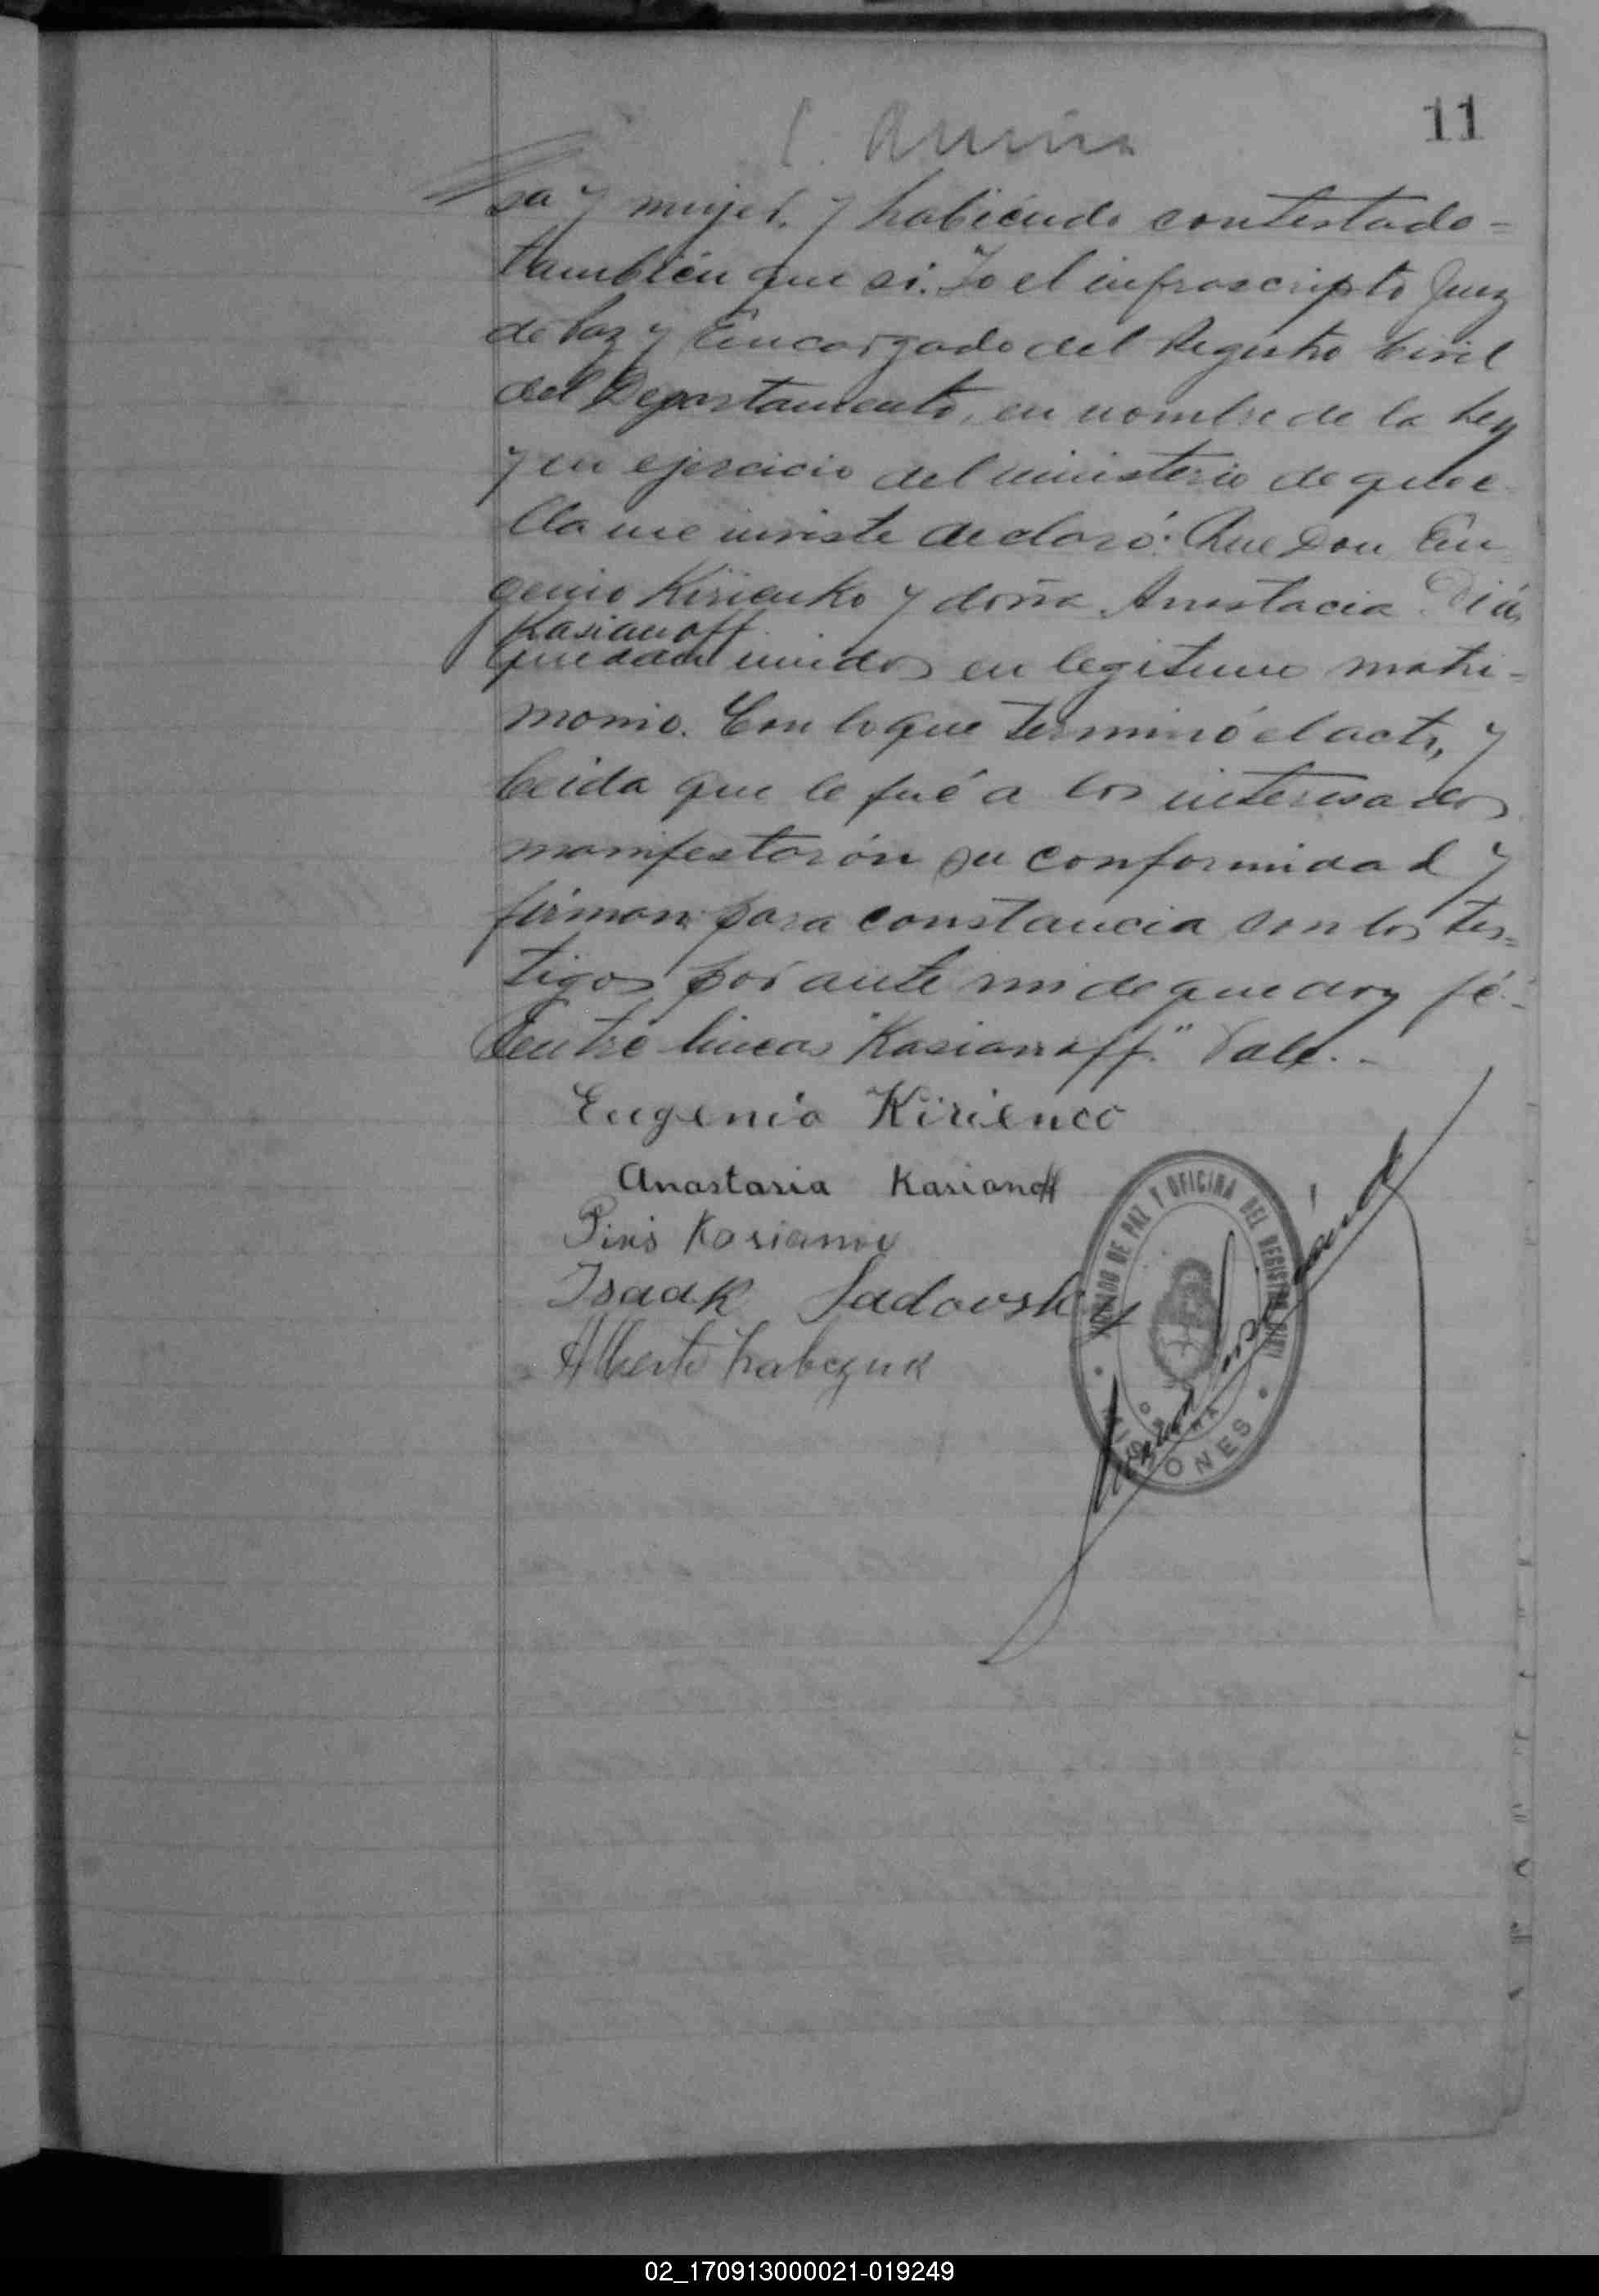 11
sa y mujer, y habiéndo contestado=
también que si. Yo el infrascripto Juez
de Paz y Encargado del Registro Civil
del Departamento, en nombre de la Ley
y en ejercicio del ministerio de que e-
lla me inviste declaró: Que Don Eu
genio Kirienko y doña Anastacia
Kasianoff
quedan unidos en legitimo matri=
monio. Con lo que terminó el acto, y
leida que le fué a los interesados
manifestarón su conformidad y
firman para constancia con los tes=
tigos por ante mi de que doy fé.-
Entre lineas "Kasianoff." Vale.-
Eugenio Kirienco
Anastasia Kasianoff
Kasianov
Isaak Sadovski
Alberto
JUZGADO DE PAZ Y OFICINA DEL REGISTRO CIVIL
MISIONES
02_170913000021-019249